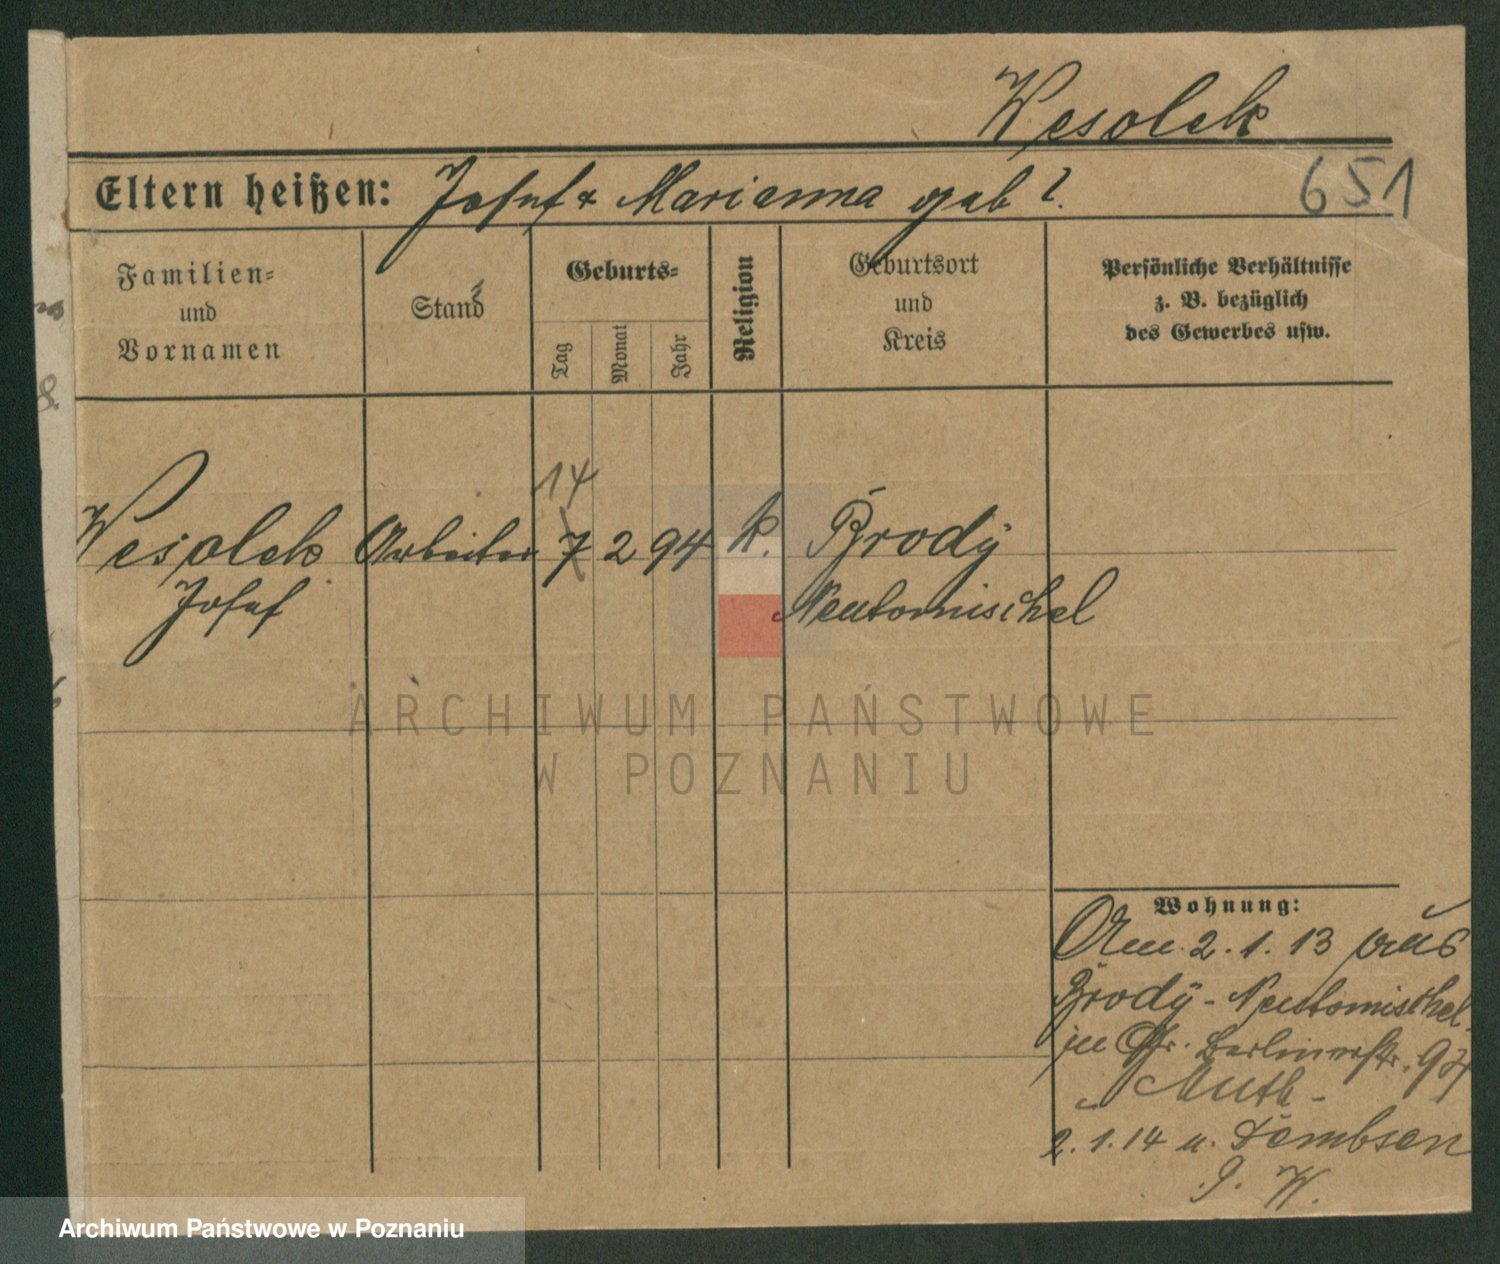 Wesolek
651
Eltern heißen: Josef & Marianna geb ?
Familien-
und
Vornamen
Stand
Geburts-
Tag
Monat
Jahr
Religion
Geburtsort
und
Kreis
Persönliche Verhältnisse
z. B. bezüglich
des Gewerbes usw.
14
Wesolek Arbeiter 7 2 94 k. Brody
Josef Neutomischel
ARCHIWUM PAŃSTWOWE
W POZNANIU
Wohnung:
Am 2. 1. 13 aus
Brody - Neutomischel
in Gr. Berlinerstr. 97
Muth -
2. 1. 14 n. Dembsen
G. W.
Archiwum Państwowe w Poznaniu